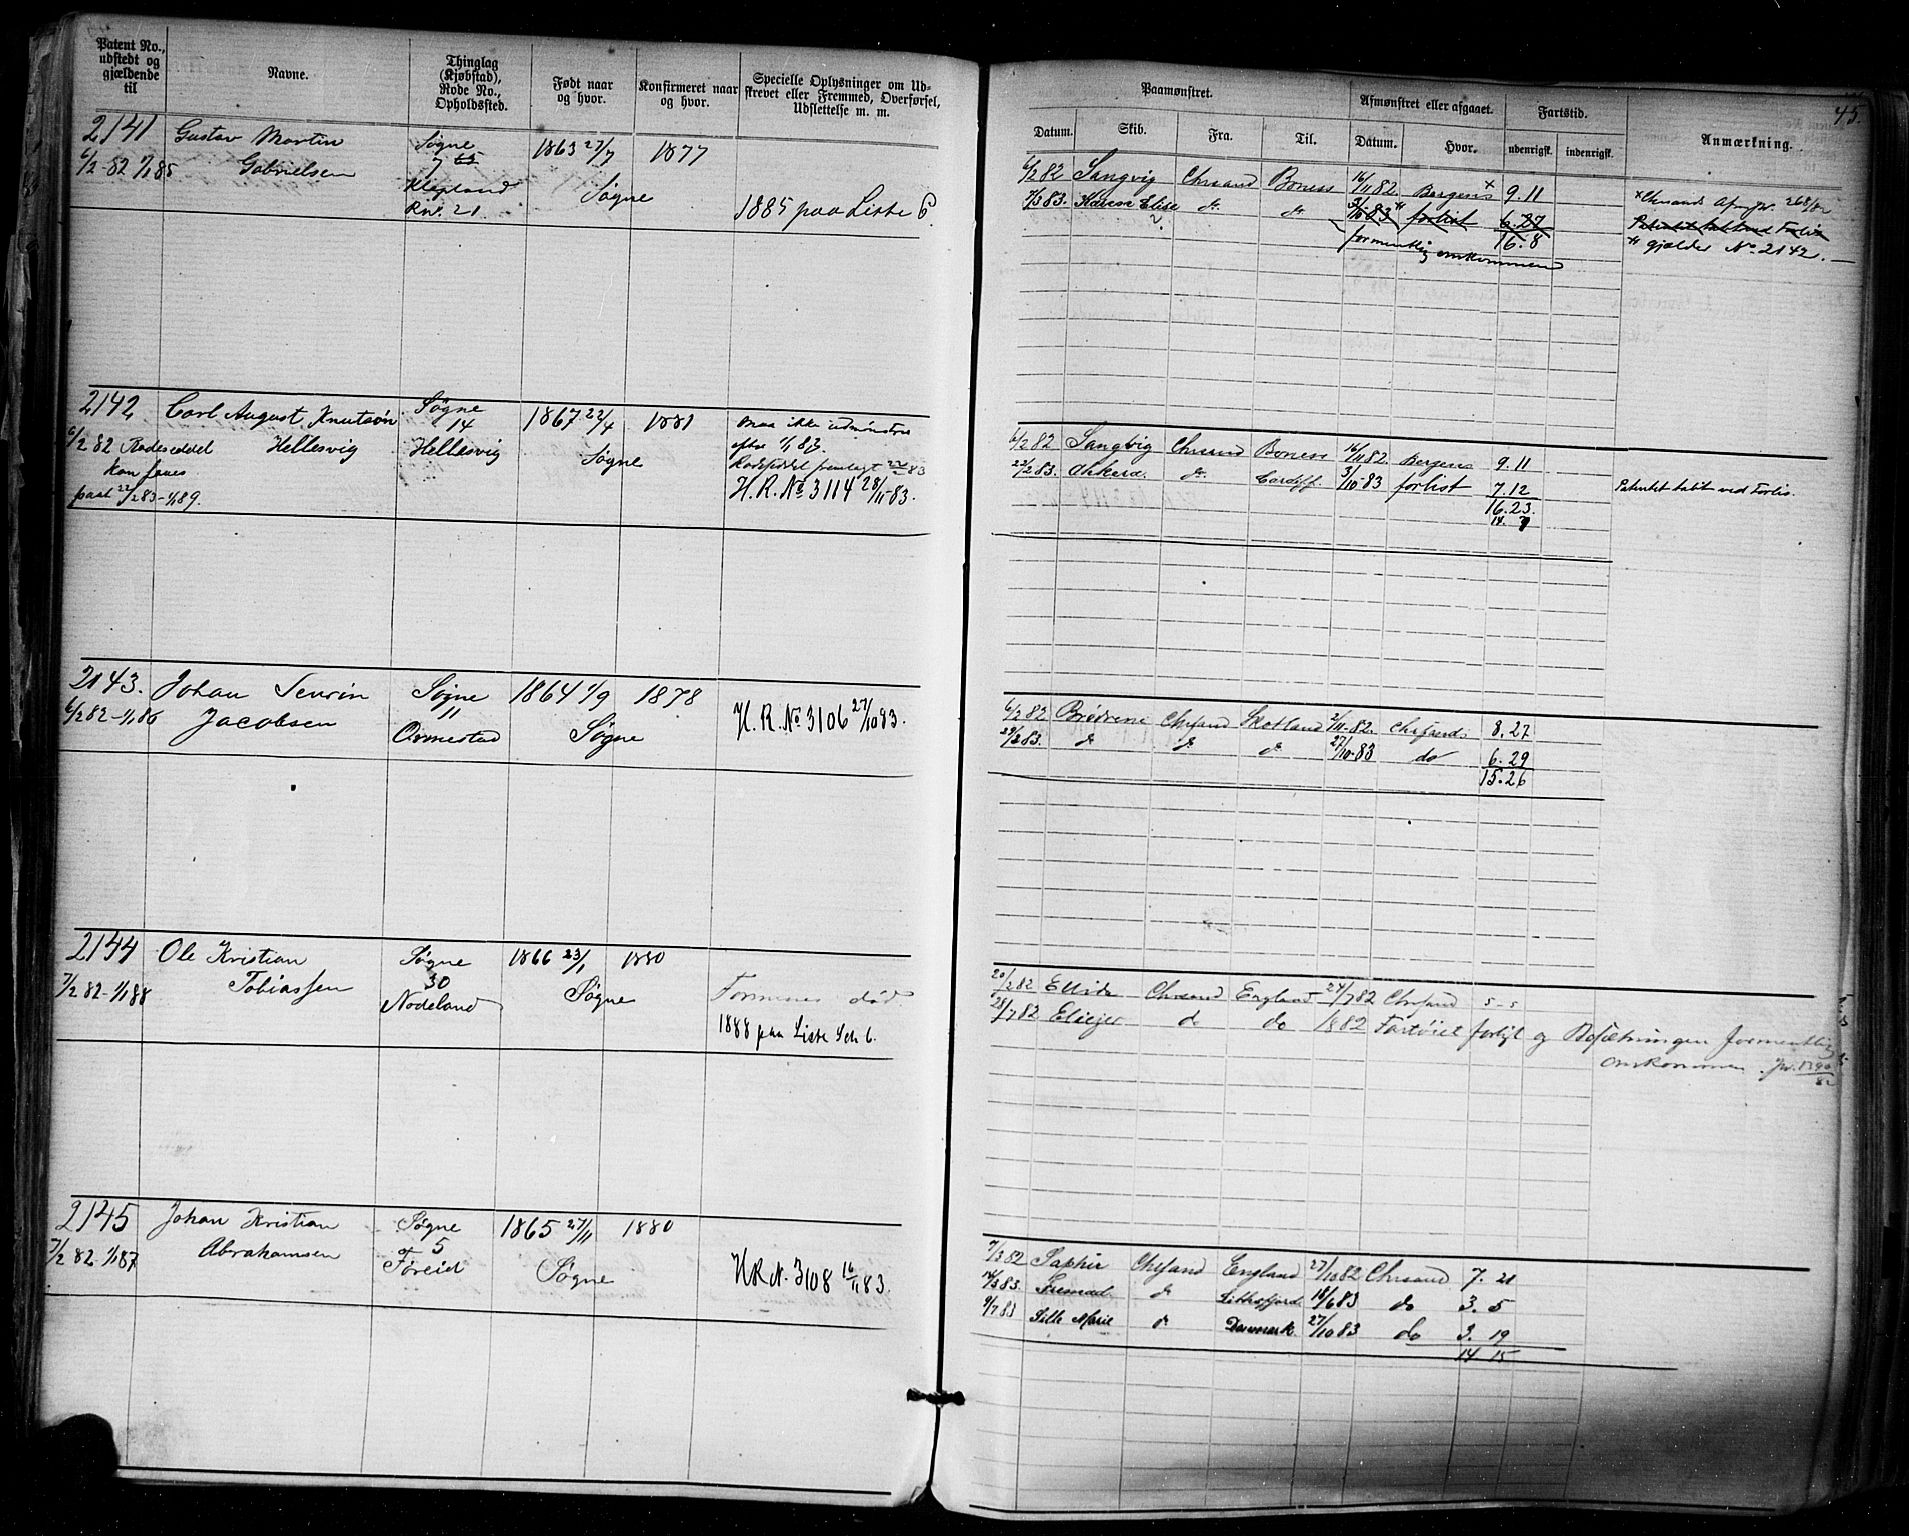 Patent No., udstedt og gjældende til
Navne.
Thinglag (Kjøbstad), Rode No., Opholdssted.
Født naar og hvor.
Konfirmeret naar og hvor.
Specielle Oplysninger om Udskrevet eller Fremmed, Overførsel, Udslettelse m. m.
2141 Gustav Martin Søgne 1863 27/7 1877
6/2-82 1/1 85 Gabrielsen 7
Klepland Søgne
Rno. 21. 1885 paa Liste 6
2142 Carl August Knutsøn Søgne 1867 22/4 1881 maa ikke udmønstres
6/2 82 Hellesvig 14 efter 1/1 83.
Hellesvig Søgne
22/2 83-1/1 89. H. R. No 3114 28/11-83.
2143. Johan Søgne 1864 1/9 1878
6/2 82-1/1 86 Jacobsen 11 H. R. No 3106 27/10 83.
Ormestad Søgne
2144 Ole Kristian Søgne 1866 23/1 1880
7/2 82-1/1 88 Tobiassen 30 Søgne død
Nodeland 1888 paa Liste 6.
2145 Johan Kristian Søgne 1865 27/11 1880
7/2 82 1/1 87 Abrahamsen 5
Føreid Søgne H R N. 3108 16/11 83.
45.
Paamønstret.
Afmønstret eller afgaaet.
Fartstid.
Anmærkning.
Datum. Skib. Fra. Til. Datum. Hvor. udenrigsk. indenrigsk.
6/2 82 Sangvig Chrsand Boness 16/11 82. Bergens x 9. 11 x Chrsands Afm. jr. 268/82
7/3 83. Karen Elise do do 3/10 83 forlist 6. 27 Patentet tabt ved Forlis
16. 8
formentlig omkommen gjælder No 2142.
6/2 82 Sangvig Chrsand Boness 16/11 82. Bergens 9. 11
22/2 83. do Cardiff. 3/10-83 forlist 7. 12 Patentet tabt ved Forlis.
16. 23.
14. 7
6/2 82 Brødrene Chrsand Skotland 2/11-82. Chrsand 8. 27
do do do 27/10-83 do 6. 29
15. 26
20/2 82 Ellida Chrsand England 24/7 82 Chrsand 5-5
28/7 82 Eliezer do do 1882 Fartøiet forlist og Besætningen formentlig
omkommen.
7/3 82 Saphir Chrsand England 27/10 82 Chrsand 7. 21
14/3 83. do 18/6 83 do 3. 5
9/7 83 Marie do Danmark 27/10 83 do 3. 19
14 15